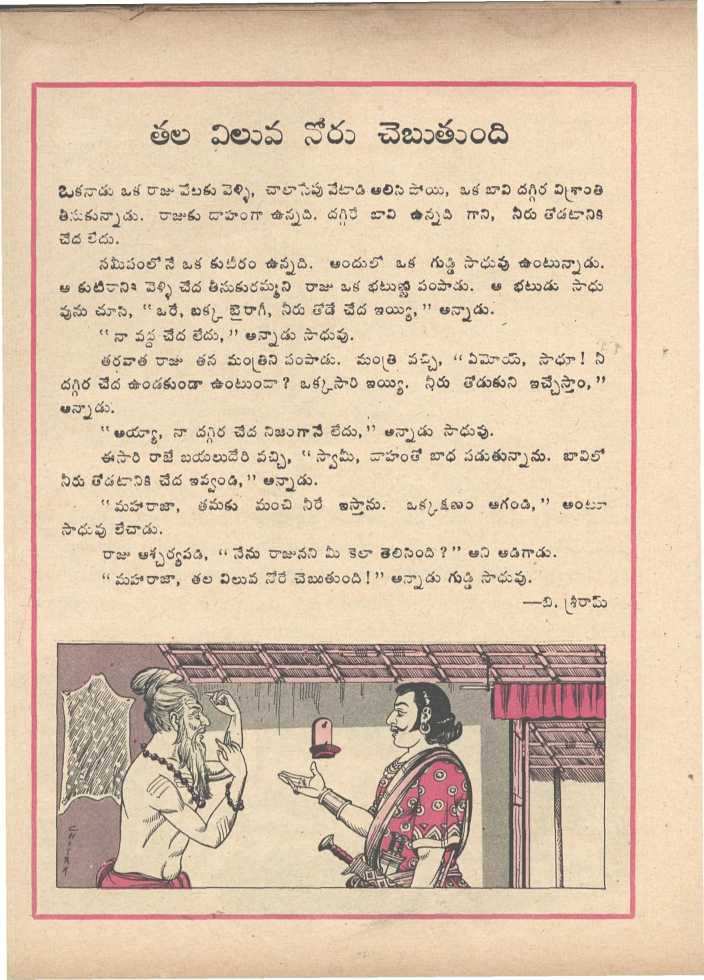 తల విలువ నోరు చెబుతుంది
ఒకనాడు ఒక రాజు వేటకు వెళ్ళి, చాలాసేపు వేటాడి అలిసి పోయి, ఒక బావి దగ్గిర విశ్రాంతి
తీసుకున్నాడు. రాజుకు దాహంగా ఉన్నది. దగ్గిరే బావి ఉన్నది గాని, నీరు తోడటానికి
చేద లేదు.
సమీపంలోనే ఒక కుటీరం ఉన్నది. అందులో ఒక గుడ్డి సాధువు ఉంటున్నాడు.
ఆ కుటీరానికి వెళ్ళి చేద తీసుకురమ్మని రాజు ఒక భటుణ్ణి పంపాడు. ఆ భటుడు సాధు
వును చూసి, “ఒరే, బక్క బైరాగీ, నీరు తోడే చేద ఇయ్యి,” అన్నాడు.
“నా వద్ద చేద లేదు,” అన్నాడు సాధువు.
తరవాత రాజు తన మంత్రిని పంపాడు. మంత్రి వచ్చి, “ఏమోయ్, సాధూ! నీ
దగ్గిర చేద ఉండకుండా ఉంటుందా? ఒక్కసారి ఇయ్యి. నీరు తోడుకుని ఇచ్చేస్తాం,”
అన్నాడు.
“అయ్యా, నా దగ్గిర చేద నిజంగానే లేదు,” అన్నాడు సాధువు.
ఈసారి రాజే బయలుదేరి వచ్చి, “స్వామీ, దాహంతో బాధ పడుతున్నాను. బావిలో
నీరు తోడటానికి చేద ఇవ్వండి,” అన్నాడు.
“మహారాజా, తమకు మంచి నీరే ఇస్తాను. ఒక్కక్షణం ఆగండి,” అంటూ
సాధువు లేచాడు.
రాజు ఆశ్చర్యపడి, “నేను రాజునని మీ కెలా తెలిసింది?” అని అడిగాడు.
“మహారాజా, తల విలువ నోరే చెబుతుంది!” అన్నాడు గుడ్డి సాధువు.
—బి. శ్రీరామ్
CHITRA